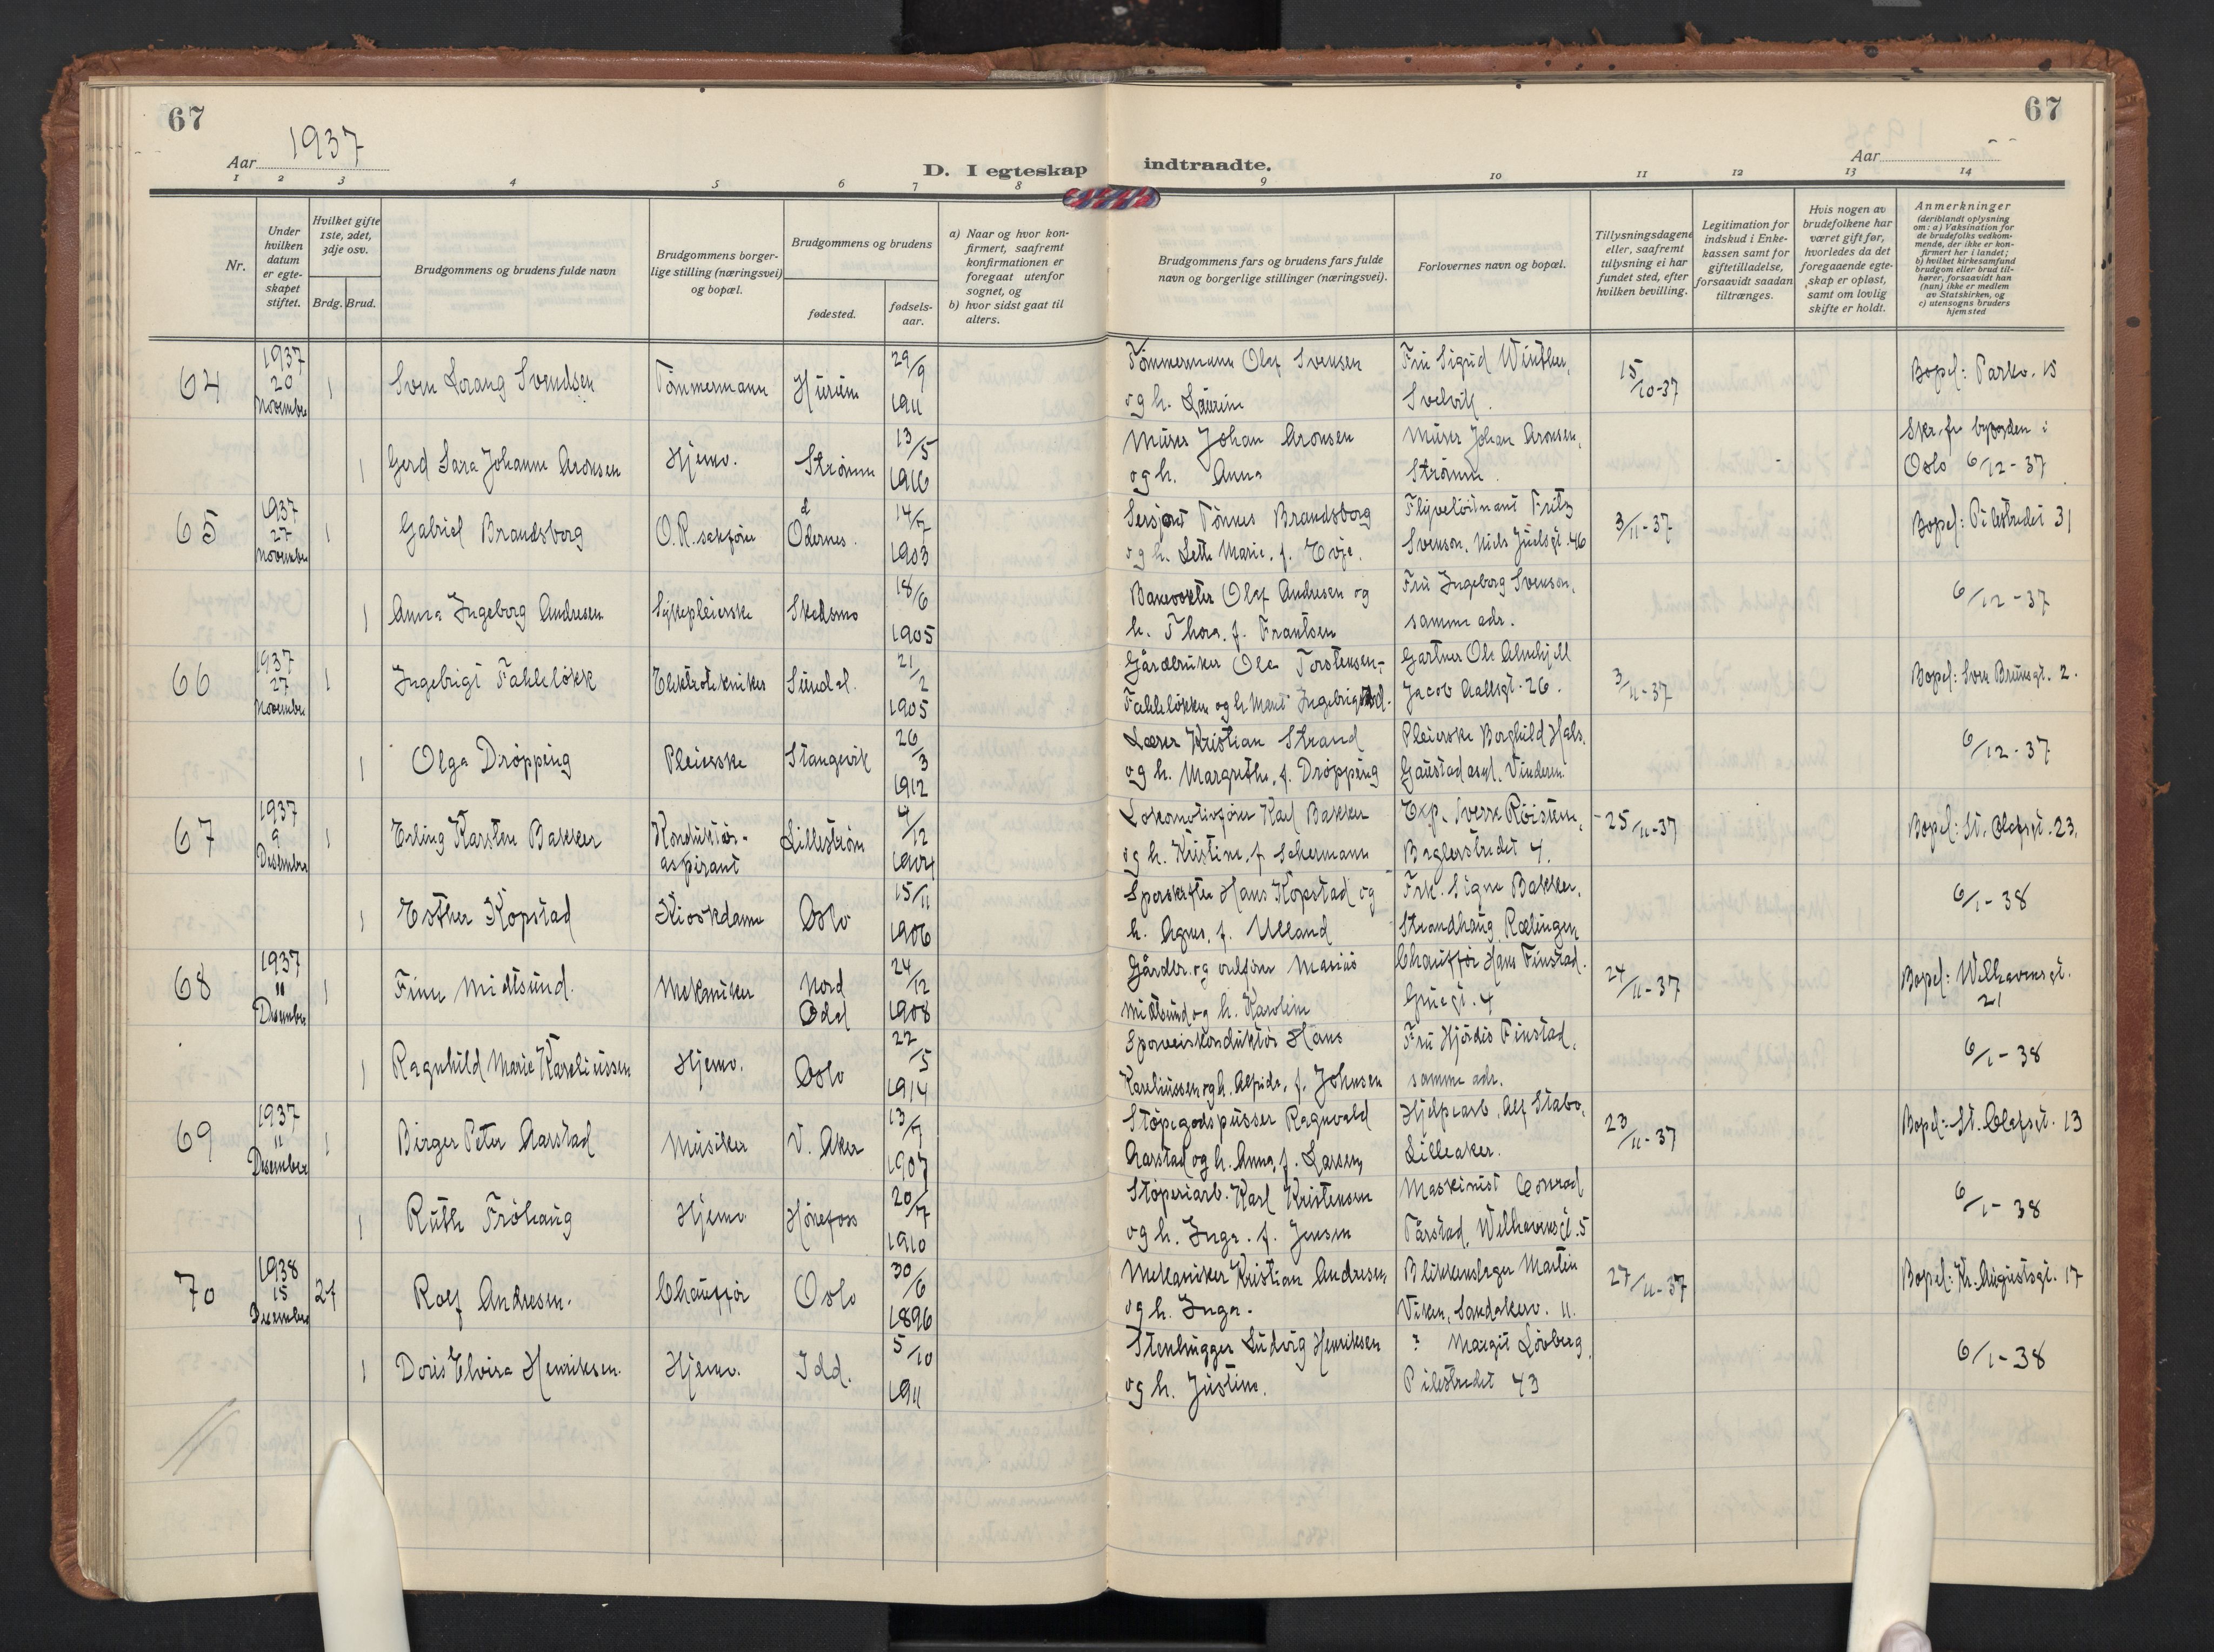 67
67
Aar 1937
Aar
D. I egteskap indtraadte.
1 2 3 4 5 6 7 8 9 10 11 12 13 14
Nr.
Under hvilken datum er egteskapet stiftet.
Hvilket gifte 1ste, 2det, 3dje osv.
Brdg. Brud.
Brudgommens og brudens fulde navn
Brudgommens borgerlige stilling (næringsvei) og bopæl.
Brudgommens og brudens
fødested.
fødselsaar.
a) Naar og hvor konfirmert, saafremt konfirmationen er foregaat utenfor sognet, og
b) hvor sidst gaat til alters.
Brudgommens fars og brudens fars fulde navn og borgerlige stillinger (næringsvei).
Forlovernes navn og bopæl.
Tillysningsdagene eller, saafremt tillysning ei har fundet sted, efter hvilken bevilling.
Legitimation for indskud i Enkekassen samt for giftetilladelse, forsaavidt saadan tiltrænges.
Hvis nogen av brudefolkene har været gift før, hvorledes da det foregaaende egteskap er opløst, samt om lovlig skifte er holdt.
Anmerkninger
(deriblandt oplysning om: a) Vaksination for de brudefolks vedkommende, der ikke er konfirmert her i landet; b) hvilket kirkesamfund brudgom eller brud tilhører, forsaavidt han (hun) ikke er medlem av Statskirken, og c) utensogns bruders hjemsted
64 1937 20 November 1 Sven Lorang Svendsen Tömmermann Hurum 29/9 1911 Tömmermann Olaf Svensen og h. Laurine Fru Sigrid Winther, Svelvik. 15/10-37 Bopel: Parkv. 15
1 Gerd Sara Johanne Aronsen Hjemv. Strömm 13/5 1916 Murer Johan Aronsen og h. Anna Murer Johan Aronsen, Strömm. Skr. fr. byfogden i Oslo 6/12-37
65 1937 27 November 1 Gabriel Brandsborg O.R. sakförer Odernes. 14/7 1903 Sersjant Tönnes Brandsborg og h. Lette Marie, f. Evje. Flyveløitnant Fritz Svenson, Niels Juelsgt. 46 3/11-37 Bopel: Pilestredet 31
1 Anna Ingeborg Andresen Sykepleierske Skedsmo 18/6 1905 Banevokter Olaf Andresen og h. Thora, f. Frantsen Fru Ingeborg Svenson, samme adr. 6/12-37
66 1937 27 November 1 Ingebrigt Fahlelökk Elektrotekniker Sundal. 21/2 1905 Gårdbruker Ole Torstensen Fahleløkken og h. Marit Ingebrigtsd. Gartner Ole Almhjell Jacob Aallsgt. 26. 3/11-37 Bopel: Sven Brunsgt. 2.
1 Olga Dröpping Pleierske Stangvik 26/3 1912 Lærer Kristian Strand og h. Margrethe, f. Dröpping Pleierske Borghild Hals, Gaustad asyl, Vinderen. 6/12-37
67 1937 9 Desember 1 Erling Karsten Bakker Konduktör-aspirant Lilleström 4/12 1904 Lokomotivförer Karl Bakker og h. Kristine, f. Schermann Exp. Sverre Röisten, Baglerstredet 4. 25/11-37 Bopel: St. Olafsgt. 23.
1 Esther Kopstad Kioskdame Oslo 15/11 1906 Sporskifter Hans Kopstad og h. Agnes, f. Ulland Frk. Signe Bakker, Strandhaug, Rælingen 6/1-38
68 1937 11 Desember 1 Finn Midtsund. Mekaniker Nord Odal 24/12 1908 Gårdbr. og ordförer Marius Midtsund og h. Karoline Chaufför Hans Finstad. Gruegt. 4 24/11-37 Bopel: Welhavensgt. 21
1 Ragnhild Marie Kareliussen Hjemv. Oslo 22/5 1914 Sporveiskonduktör Hans Kareliussen og h. Alfride, f. Johnsen Fru Hjördis Finstad, samme adr. 6/1-38
69 1937 11 Desember 1 Birger Peter Aarstad Musiker V. Aker 13/7 1907 Stöpegodspusser Ragnvald Aarstad og h. Anna, f. Larsen Hjelpearb. Alf Stabo, Lilleaker. 23/11-37 Bopel: St. Olafsgt. 13
1 Ruth Fröhaug Hjemv. Hönefoss 20/7 1910 Stöperiarb. Karl Kristensen og h. Inga. f. Jensen Maskinist Conrad Tårstad, Welhavensgt. 5 6/1-38
70 1938 15 Desember 2 f Rolf Andresen. Chaufför Oslo 30/6 1896 Mekaniker Kristian Andresen og h. Inga. Blikkenslager Martin Viken, Sandakerv. 11. 27/11-37 Bopel: Kr. Augustsgt. 17
1 Doris Elvira Henriksen. Hjemv. Idd. 5/10 1911 Stenhugger Ludvig Henriksen og h. Justine. ? Margit Lövberg Pilestredet 43 6/1-38